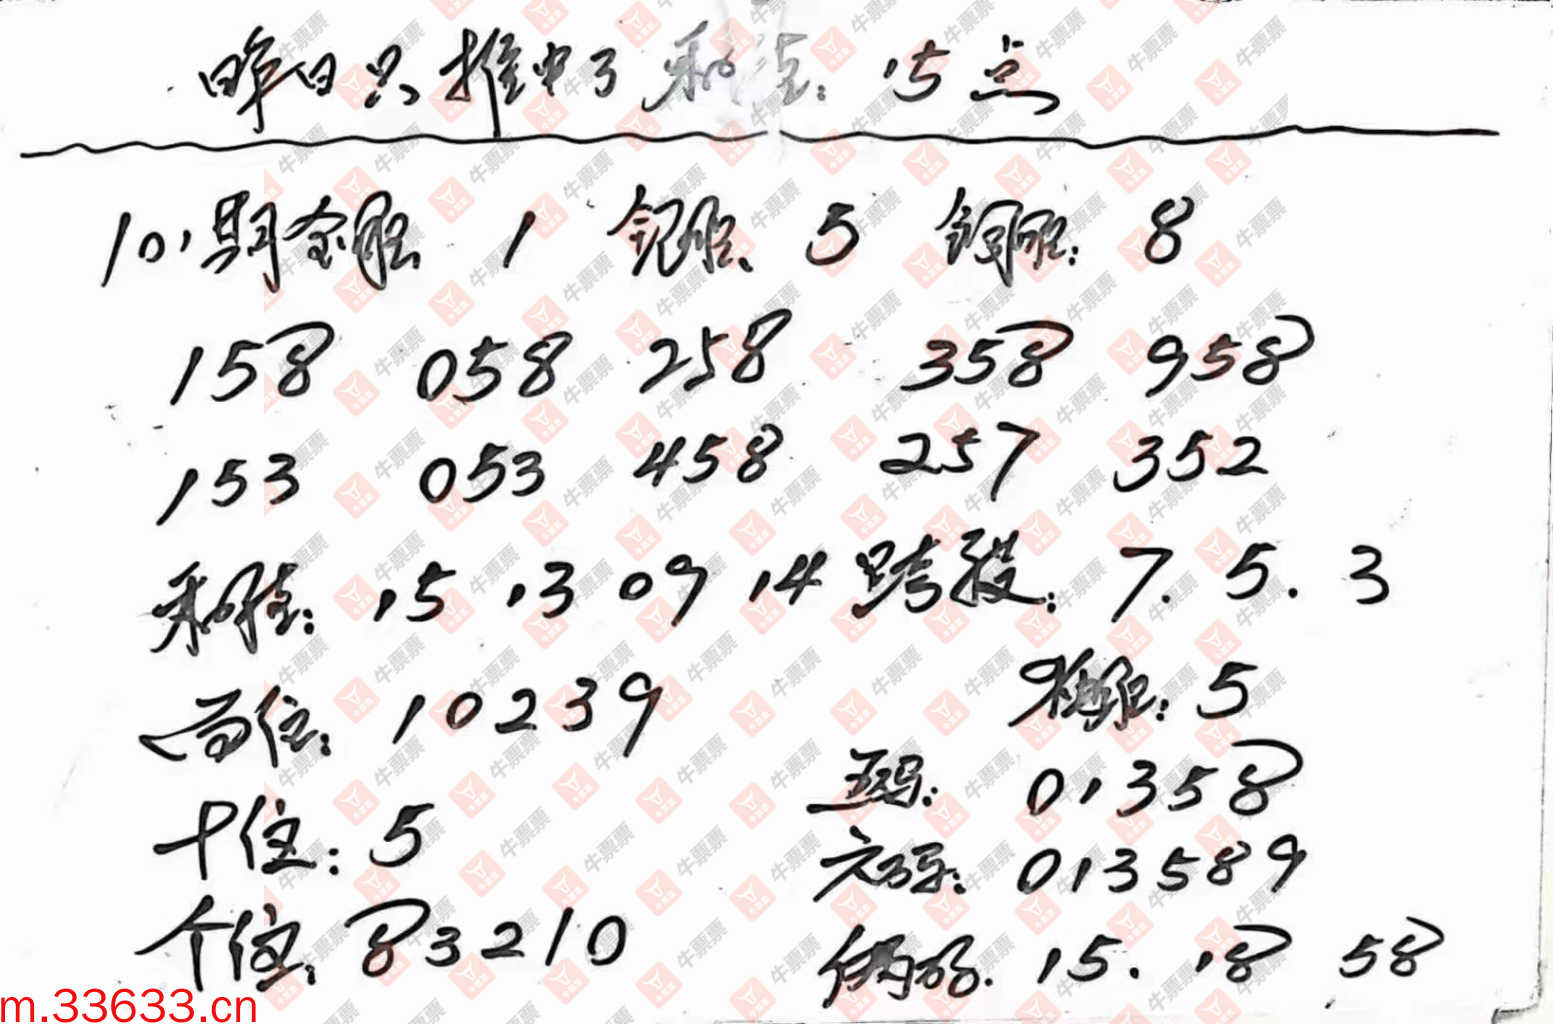 昨日只推中了和值:15点
101期金胆 1 银胆: 5 铜胆: 8
158 058 258 358 958
153 053 458 257 352
和值: 15 13 09 14 跨投: 7. 5. 3
百位: 10239
独胆: 5
五码: 01358
十位: 5
六码: 013589
个位: 83210
俩码. 15. 18 58
m.33633.cn
牛票票